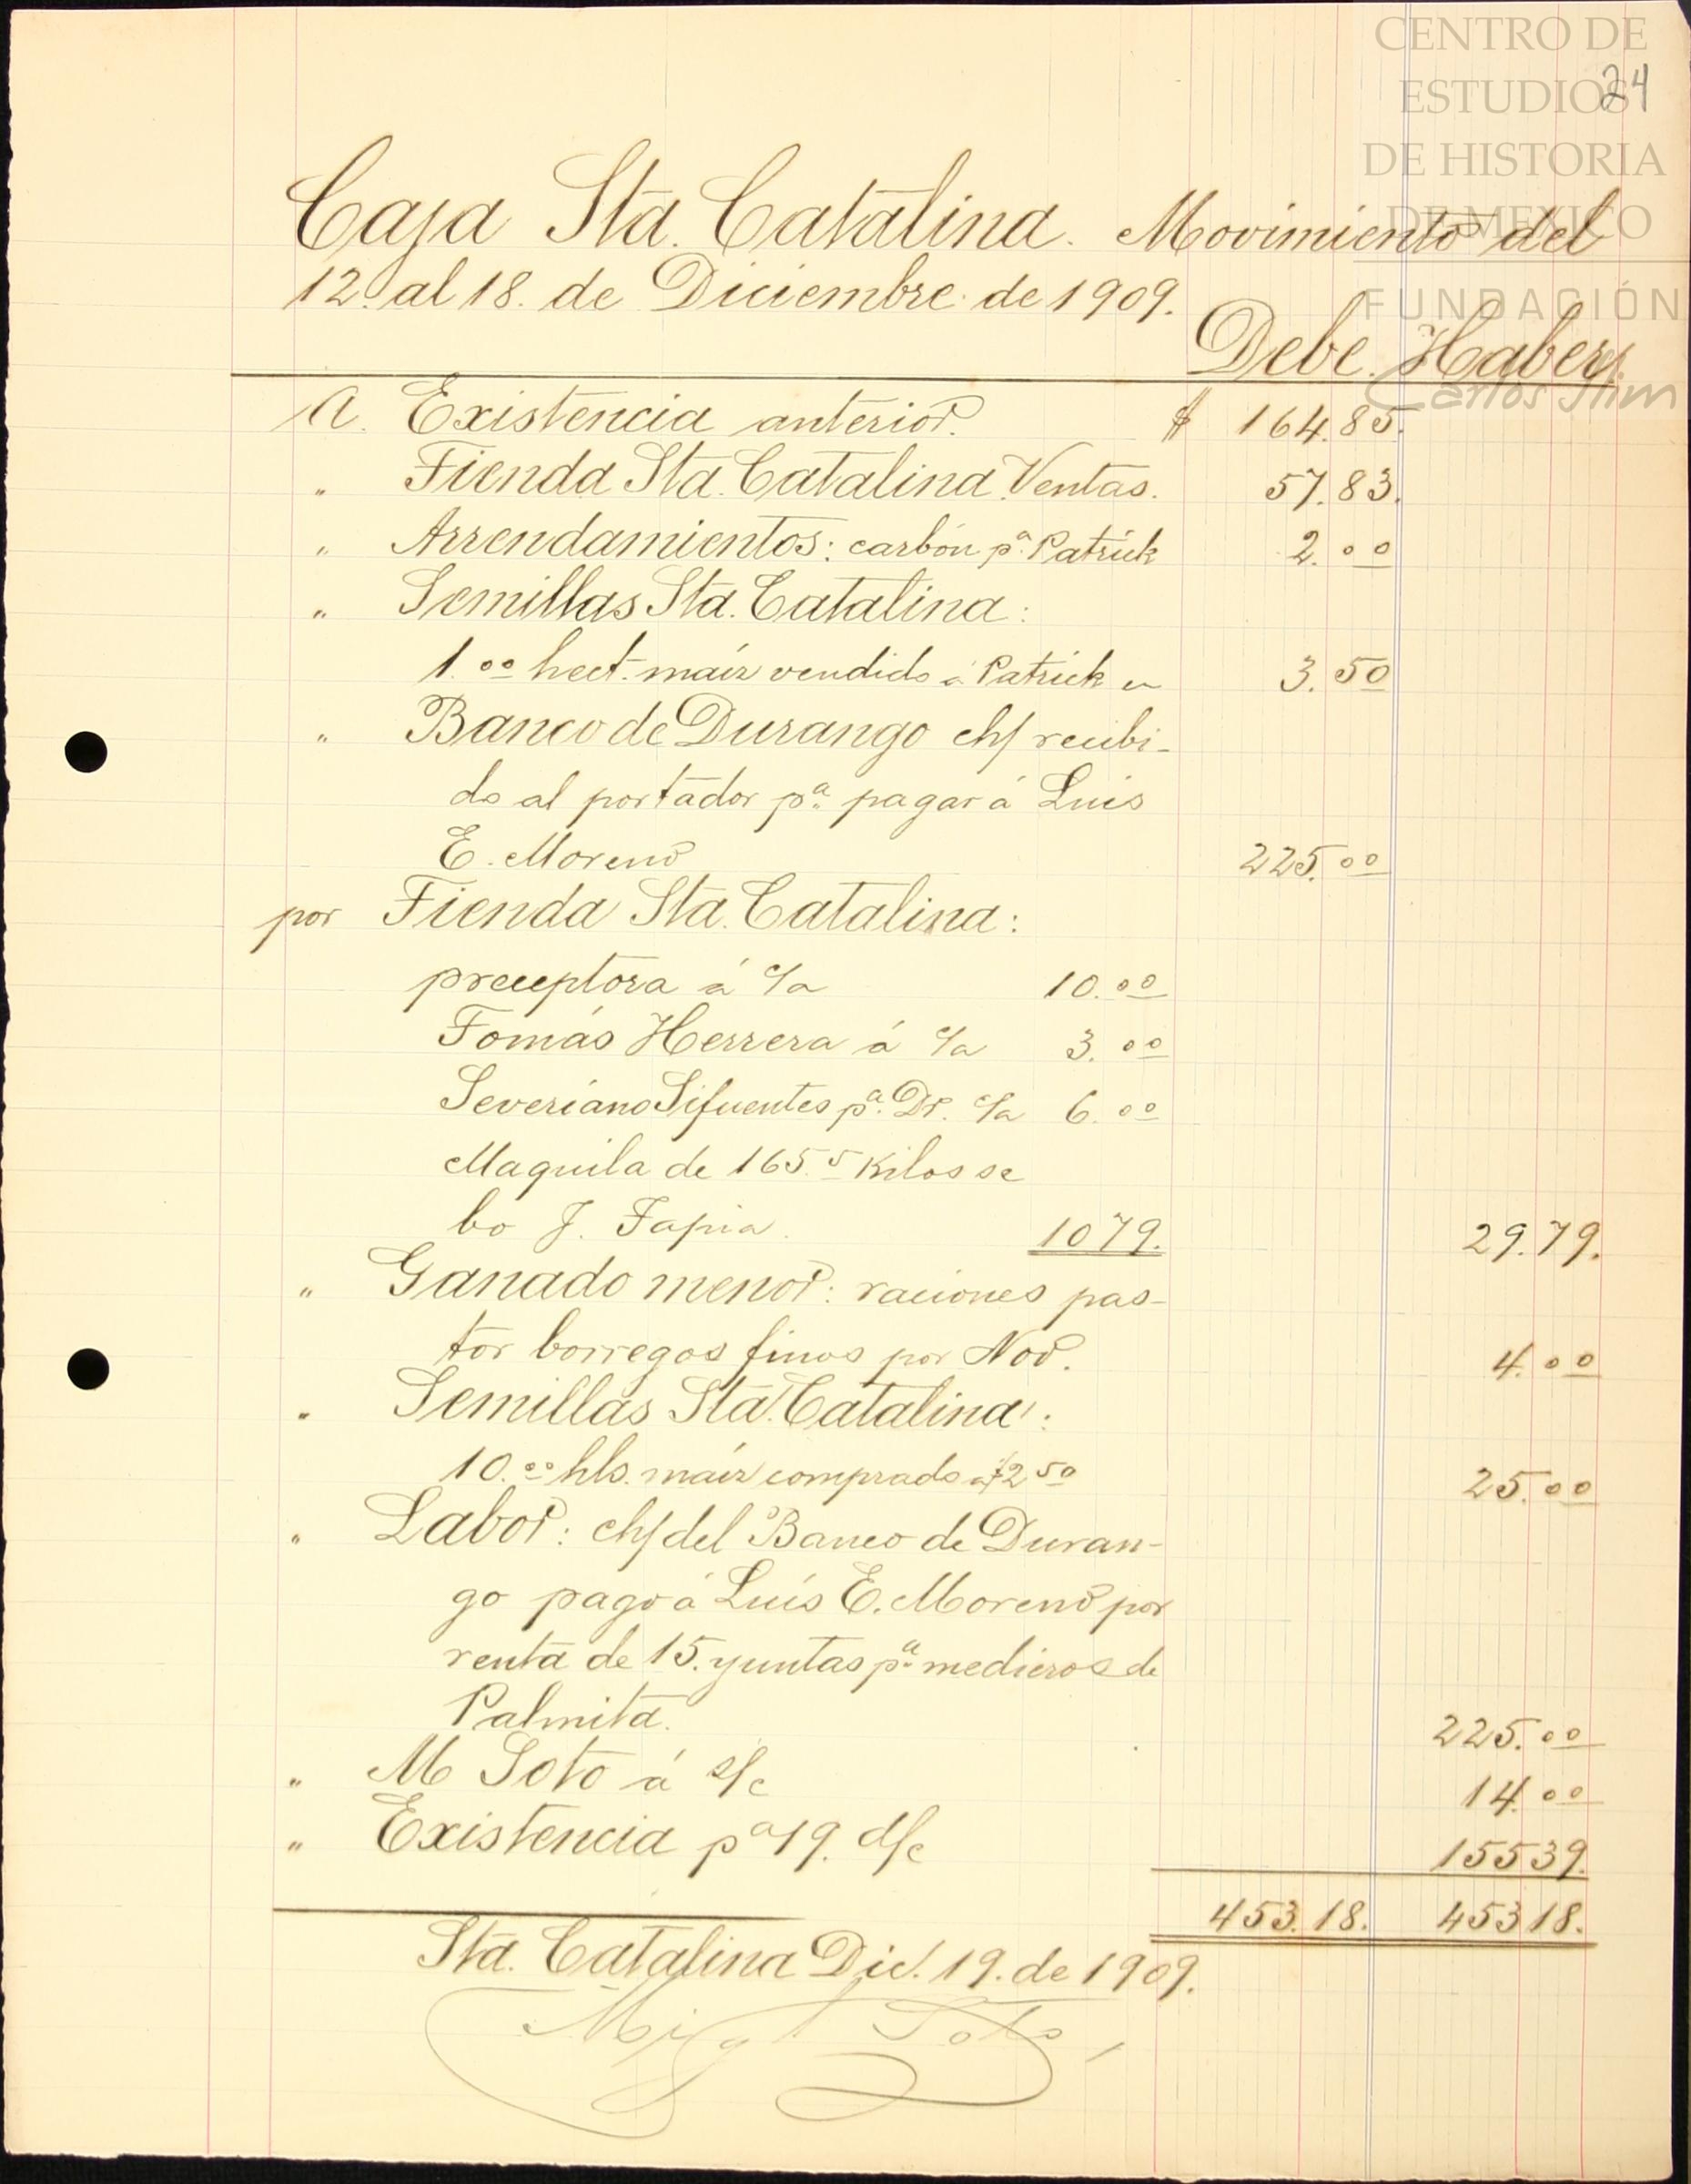 CENTRO DE
ESTUDIOS
24
DE HISTORIA
DE MEXICO
FUNDACIÓN
Carlos Slim
Caja Sta. Catalina. Movimiento del
12. al 18. de Diciembre de 1909.
Debe. Haber.
A. Existencia anterior. $ 164.85.
" Tienda Sta. Catalina Ventas. 57.83.
" Arrendamientos: carbón pª. Patrick 2.00
" Semillas Sta. Catalina:
1.00 hect. maíz vendido á Patrick en 3.50
" Banco de Durango ch/ recibi-
do al portador pª. pagar á Luis
E. Moreno 225.00
por Tienda Sta. Catalina:
preceptora á c/a 10.00
Tomás Herrera á c/a 3.00
Severiano Sifuentes pª. Dr. c/a 6.00
Maquila de 165.5 Kilos se
bo J. Tapia. 1079. 29.79.
" Ganado menor: raciones pas-
tor borregos finos por Nov. 4.00
" Semillas Sta. Catalina:
10.00 hls. maíz comprado á $2.50 25.00
" Labor: ch/ del Banco de Duran-
go pago á Luis E. Moreno por
renta de 15. yuntas pª. medieros de
Palmita. 225.00
" M Soto á s/c 14.00
" Existencia pª 19. d/c 15539.
453.18. 45318.
Sta. Catalina Dic. 19. de 1909.
Migl Soto